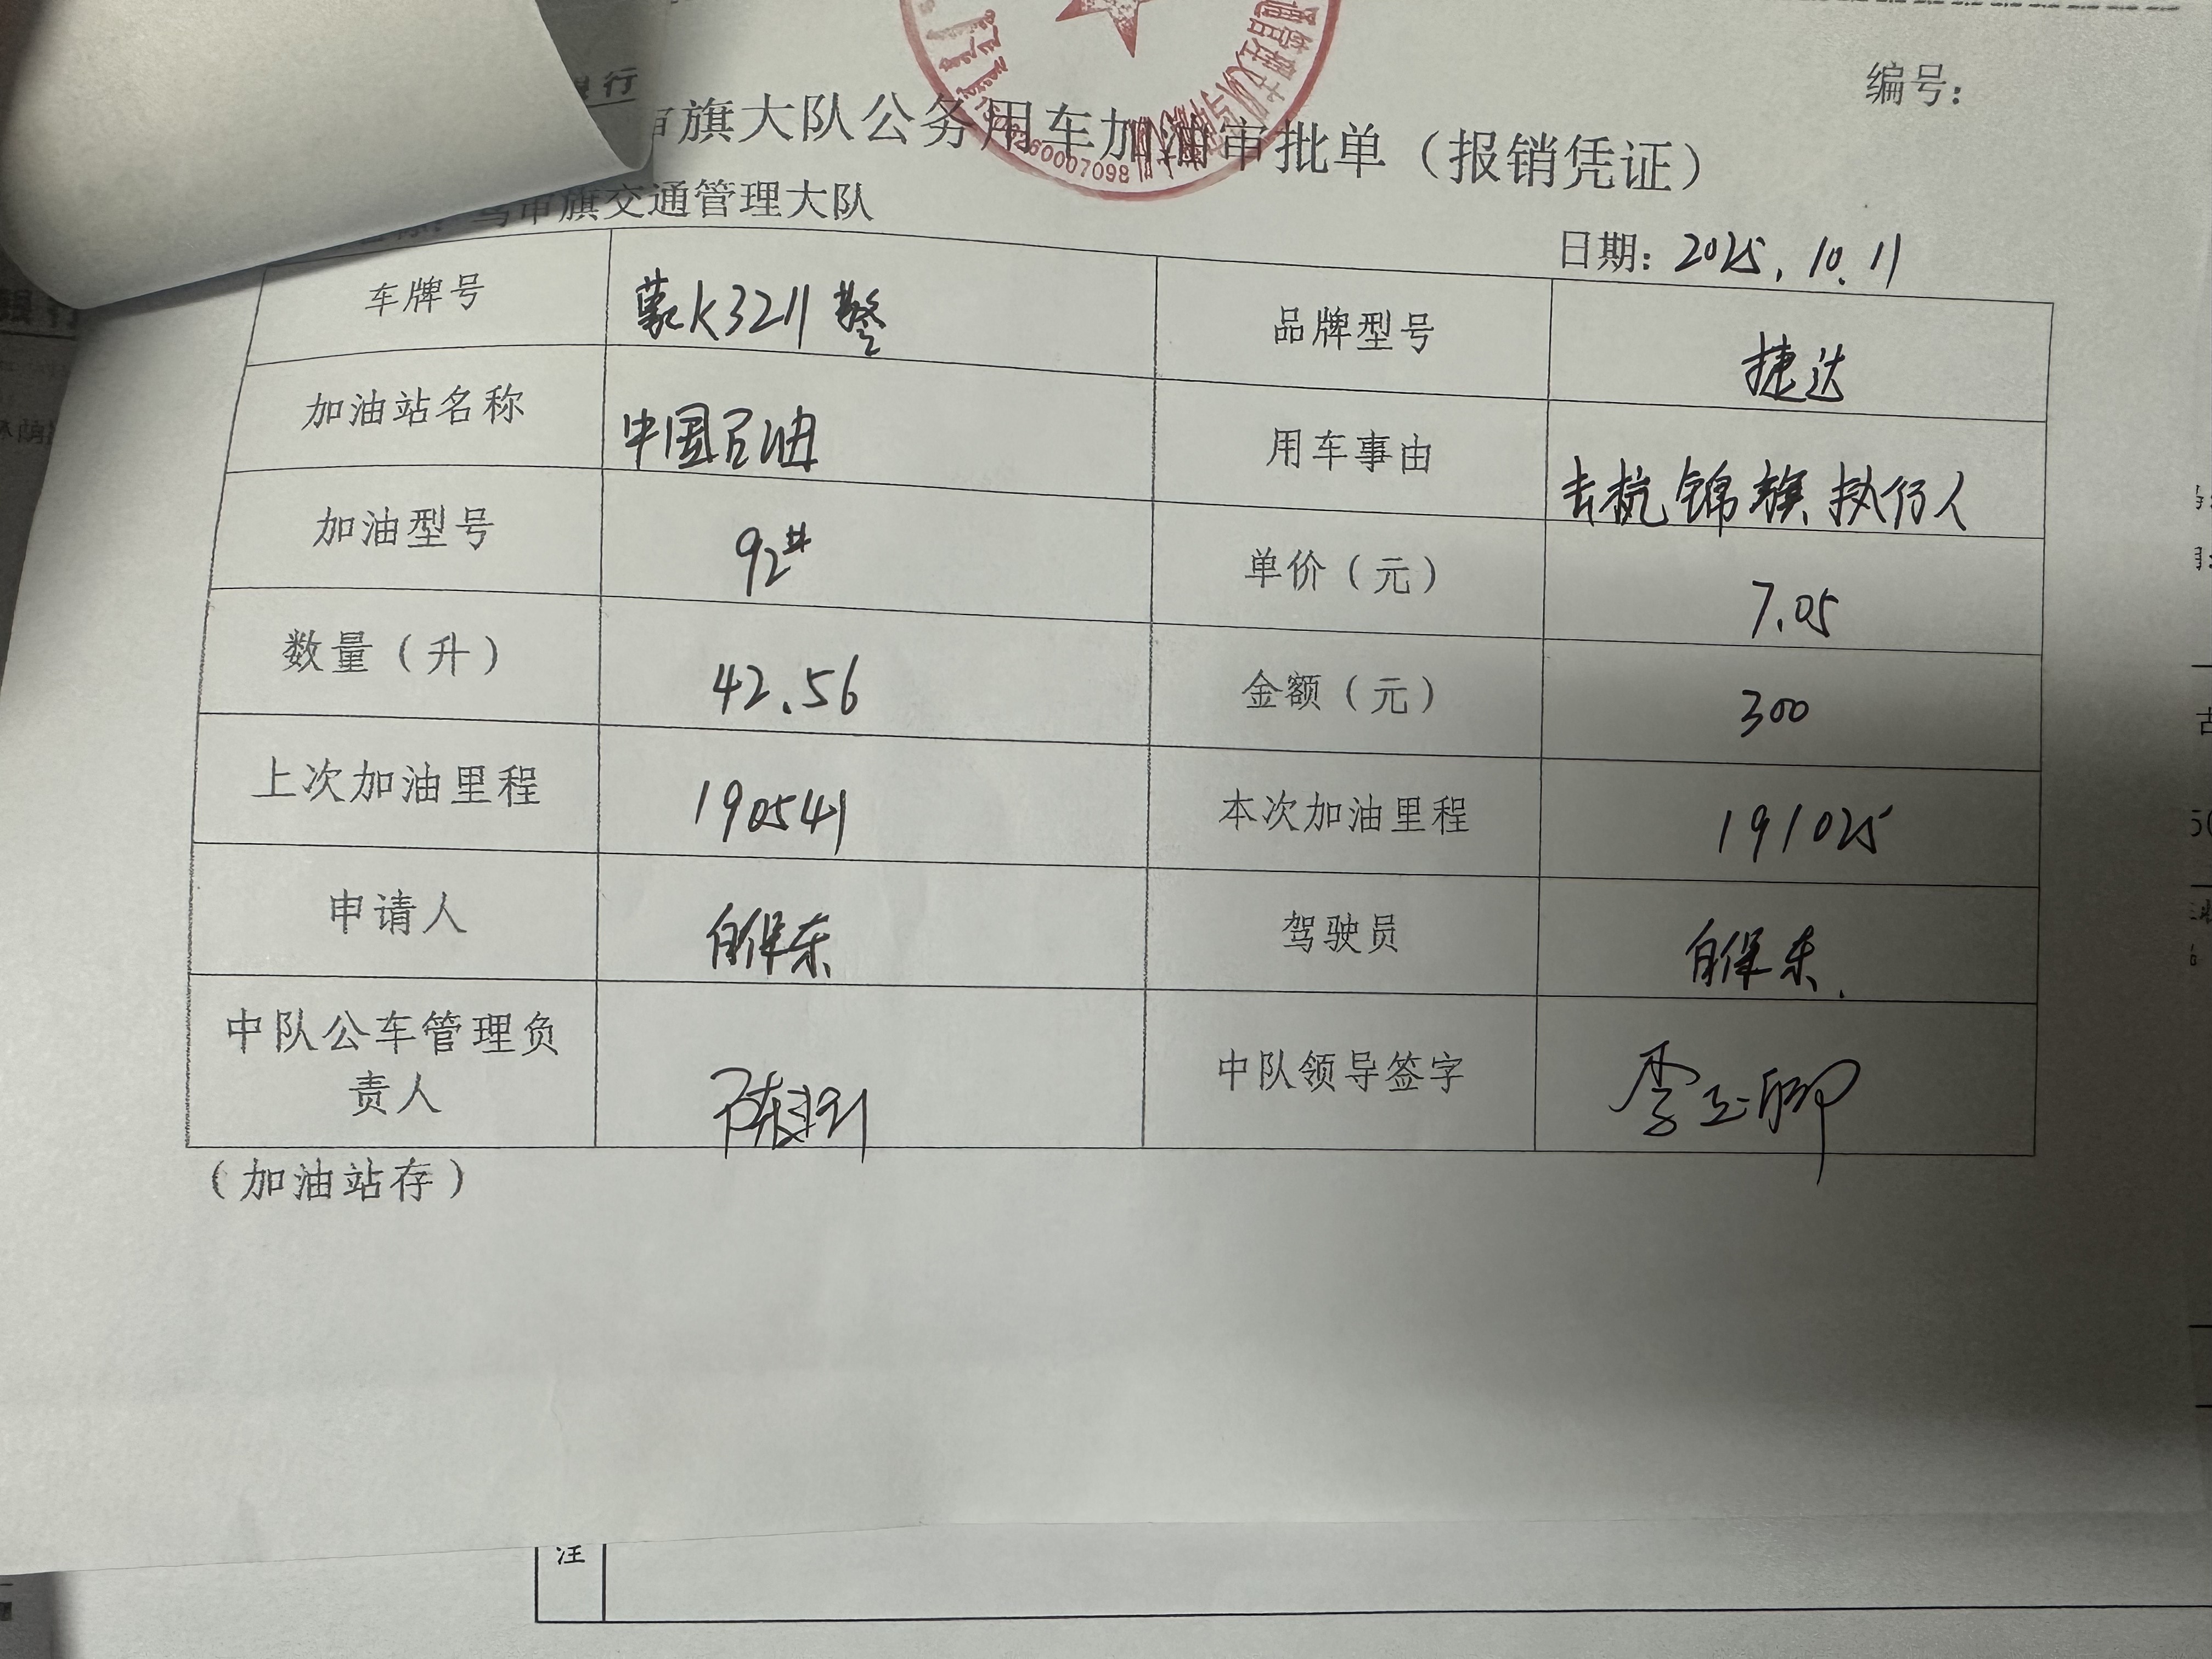 编号：
审旗大队公务用车加油审批单（报销凭证）
乌审旗交通管理大队
日期：2025.10.11
车牌号 蒙K3211警 品牌型号 捷达
加油站名称 中国石油 用车事由 去杭锦旗执行人
加油型号 92# 单价（元） 7.05
数量（升） 42.56 金额（元） 300
上次加油里程 190541 本次加油里程 191025
申请人 白保东 驾驶员 白保东
中队公车管理负责人 中队领导签字
（加油站存）
注